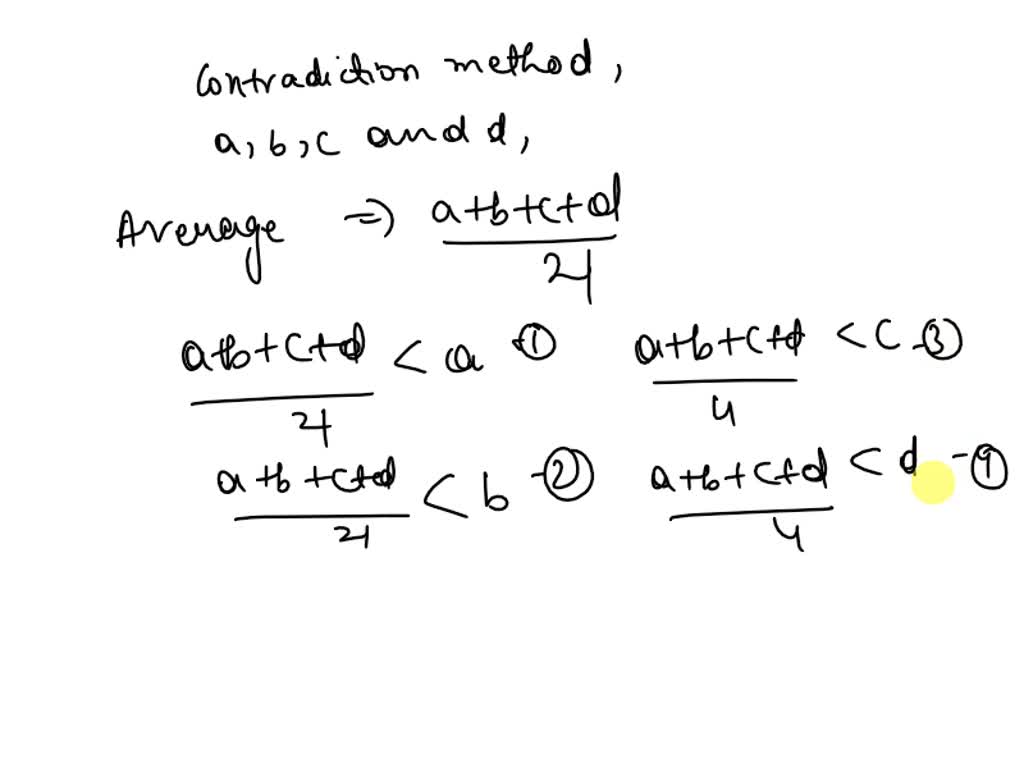 Contradiction method,
a, b, c and d,
Average => a+b+c+d / 4
a+b+c+d / 4 < a -①
a+b+c+d / 4 < c -③
a+b+c+d / 4 < b -②
a+b+c+d / 4 < d -④